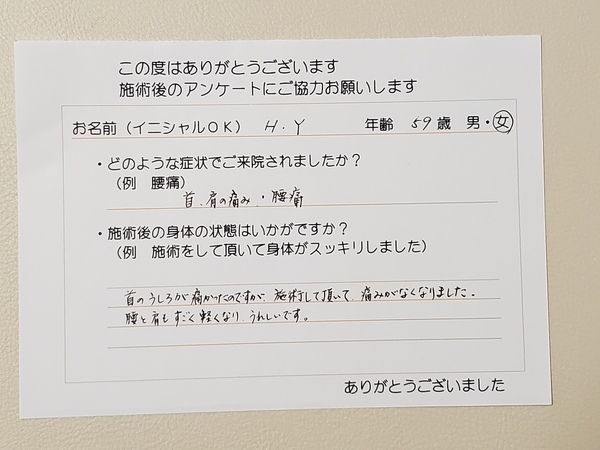 この度はありがとうございます
施術後のアンケートにご協力お願いします
お名前（イニシャルOK） H.Y 年齢 59歳 男・女
・どのような症状でご来院されましたか？
（例 腰痛）
首、肩の痛み・腰痛
・施術後の身体の状態はいかがですか？
（例 施術をして頂いて身体がスッキリしました）
首のうしろが痛かったのですが、施術して頂いて、痛みがなくなりました。
腰と肩もすごく軽くなり、うれしいです。
ありがとうございました